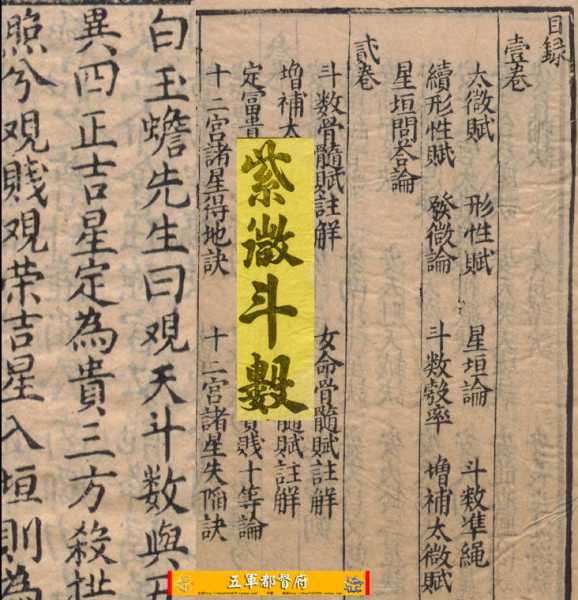 目録
壹卷
太微賦 形性賦 星垣論 斗数凖繩
續形性賦 發微論 斗数彀率 增補太微賦
星垣問荅論
貳卷
斗数骨髓賦註解 女命骨髓賦註解
增補太 髓賦註解
定富貴 賤十等論
十二宮諸星得地訣 十二宮諸星失陷訣
紫微斗數
白玉蟾先生曰观天斗数與五
異四正吉星定為貴三方殺拱
照兮观賤观荣吉星入垣則為
五軍都督府